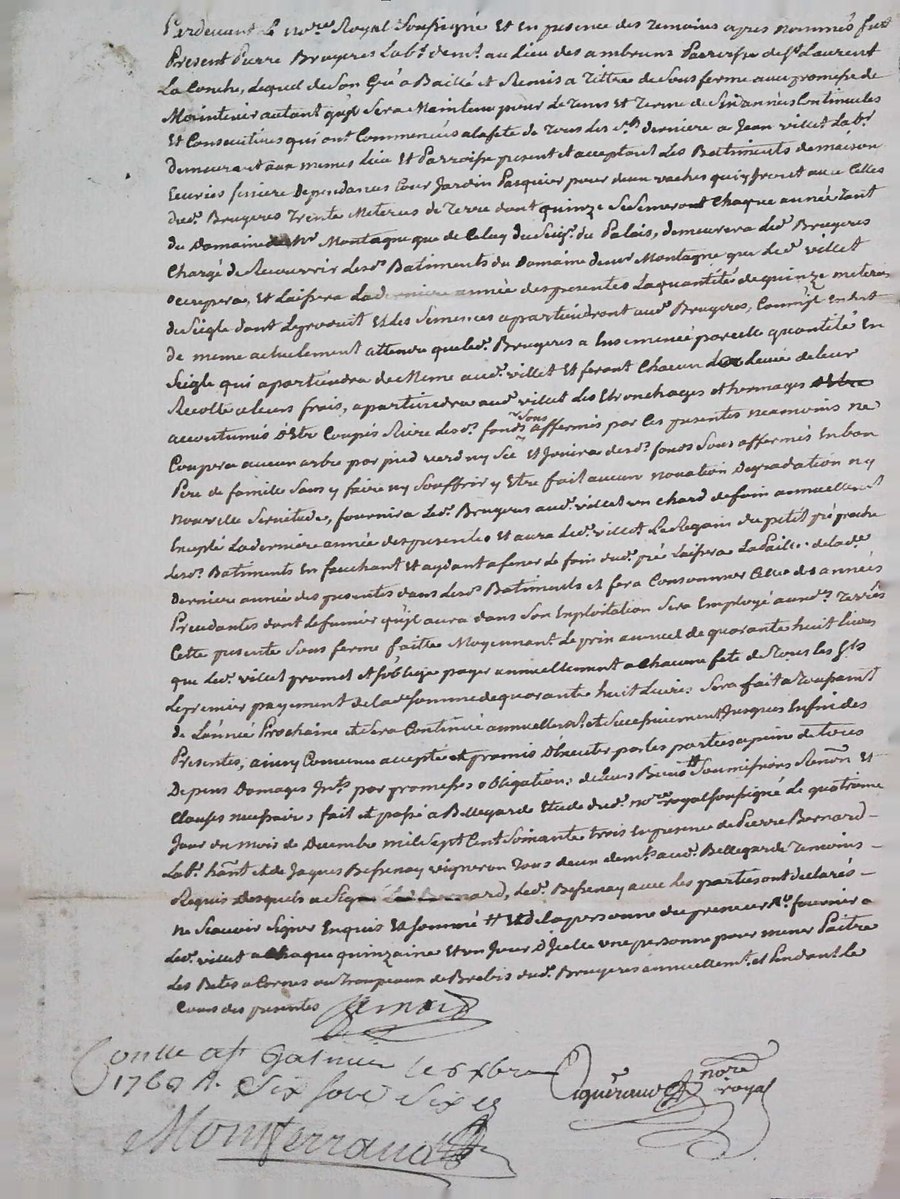 Pardevant Le no.re Royal Soussigné Et en presence des temoins apres nommés fut
Present Pierre Bruyeres Lab.r dem.t au Lieu des ambruns Parroisse de S.t Laurent
La Conche, Lequel de Son Gré a Baillé et Remis a Tittre de Sous ferme avec promesse de
Maintenir autant qu'il Sera Maintenu pour Le tems et terme de Six années Continuelles
Et Consecutives qui ont Commencés a la fete de Tous Les S.ts derniere a Jean villet Lab.r
demeurant aux memes Lieu et Parroisse present et acceptant Les Batiments de maison
Ecuries feniere Dependances Cour Jardin Pasquier pour deux vaches qui yront avec Celles
dud. Bruyeres Trente Meterées de Terre dont quinze Se Semeront Chaque année tant
du Domaine de M.r Montagne que de Celuy du Seig.r du Palais, demeurera led. Bruyeres
Chargé de Recouvrir Lesd. Batiments du Domaine de Mr Montagne que Led. villet
occupera, Et Laissera La derniere année des presentes La quantité de quinze meterées
de Seigle dont Le produit Et les Semences apartiendront aud. Bruyeres, Comme
de meme actuelement attendu que led. Bruyeres a Ensemencé pareille quantité En
Seigle qui apartiendra de Meme aud. villet Et feront Chacun La Levée de leur
Recolte a leurs frais, apartiendra aud. villet Les Etronchages et hermages
accoutumés d'Etre Coupés Riere Lesd. fonds Sous affermés par Ces presentes neamoins ne
Coupera aucun arbre par pied verd ny Sec Et Jouira desd. fonds Sous affermés En bon
Pere de famille Sans y faire ny Souffrir y Etre fait aucun novation Degradation ny
nouvelle Servitude, fournira Led. Bruyeres aud. villet un Chard de foin annuellement
Excepté La derniere année des presentes Et aura Led. villet Le Regain du petit pré proche
Lesd. Batiments En fauchant Et aydant a fener Le foin dud. pré Laissera La Paille de lad.
Derniere année des presentes dans Lesd. Batiments et fera Consommer Celle des années
Precedantes dont Le fumier qu'il aura dans Son Exploitation Sera Employé auxd. Terres
Cette presente Sous ferme faitte Moyennant Le prix annuel de quarante huit Livres
que Led. villet promet et s'oblige payer annuellement a Chacune fete de Tous Les S.ts
Le premier payement de lad. Somme de quarante huit Livres Sera fait a Toussaint
de L'année Prochaine et Sera Continué annuellem.t et Successivement Jusques En fin des
Presentes, ainsy Convenu accepté et promis d'Executer par les parties a peine de tous
Depens Domages Int.s par promesses obligation: de leurs Biens Soumissions Renon. Et
Clauses necessaires, fait et passé a Bellegarde Etude dud. no.re royal Soussigné Le quatrieme
Jour du mois de Decembre mil Sept Cent Soixante trois En presence de Pierre Bernard
Lab.r hânt et de Jaques Bessenay vigneron Tous deux dem.ts aud. Bellegarde Temoins
Requis Desquels a Signé Led. Bernard, Led. Bessenay avec les parties ont declarés
ne Scavoir Signer Enquis Et Sommé # Et de la personne du preneur fournir a
Led. villet a Chaque quinzaine Et un Jour D'Icelle une personne pour mener Paitre
Les Betes a Cornes ou Troupeaux de Brebis dud. Bruyeres annuellem.t et Pendant Le
Cours des presentes Bernard
Conllé a le 5 xbre
1763 R. Six Sols Six
Montterraud
nore
royal